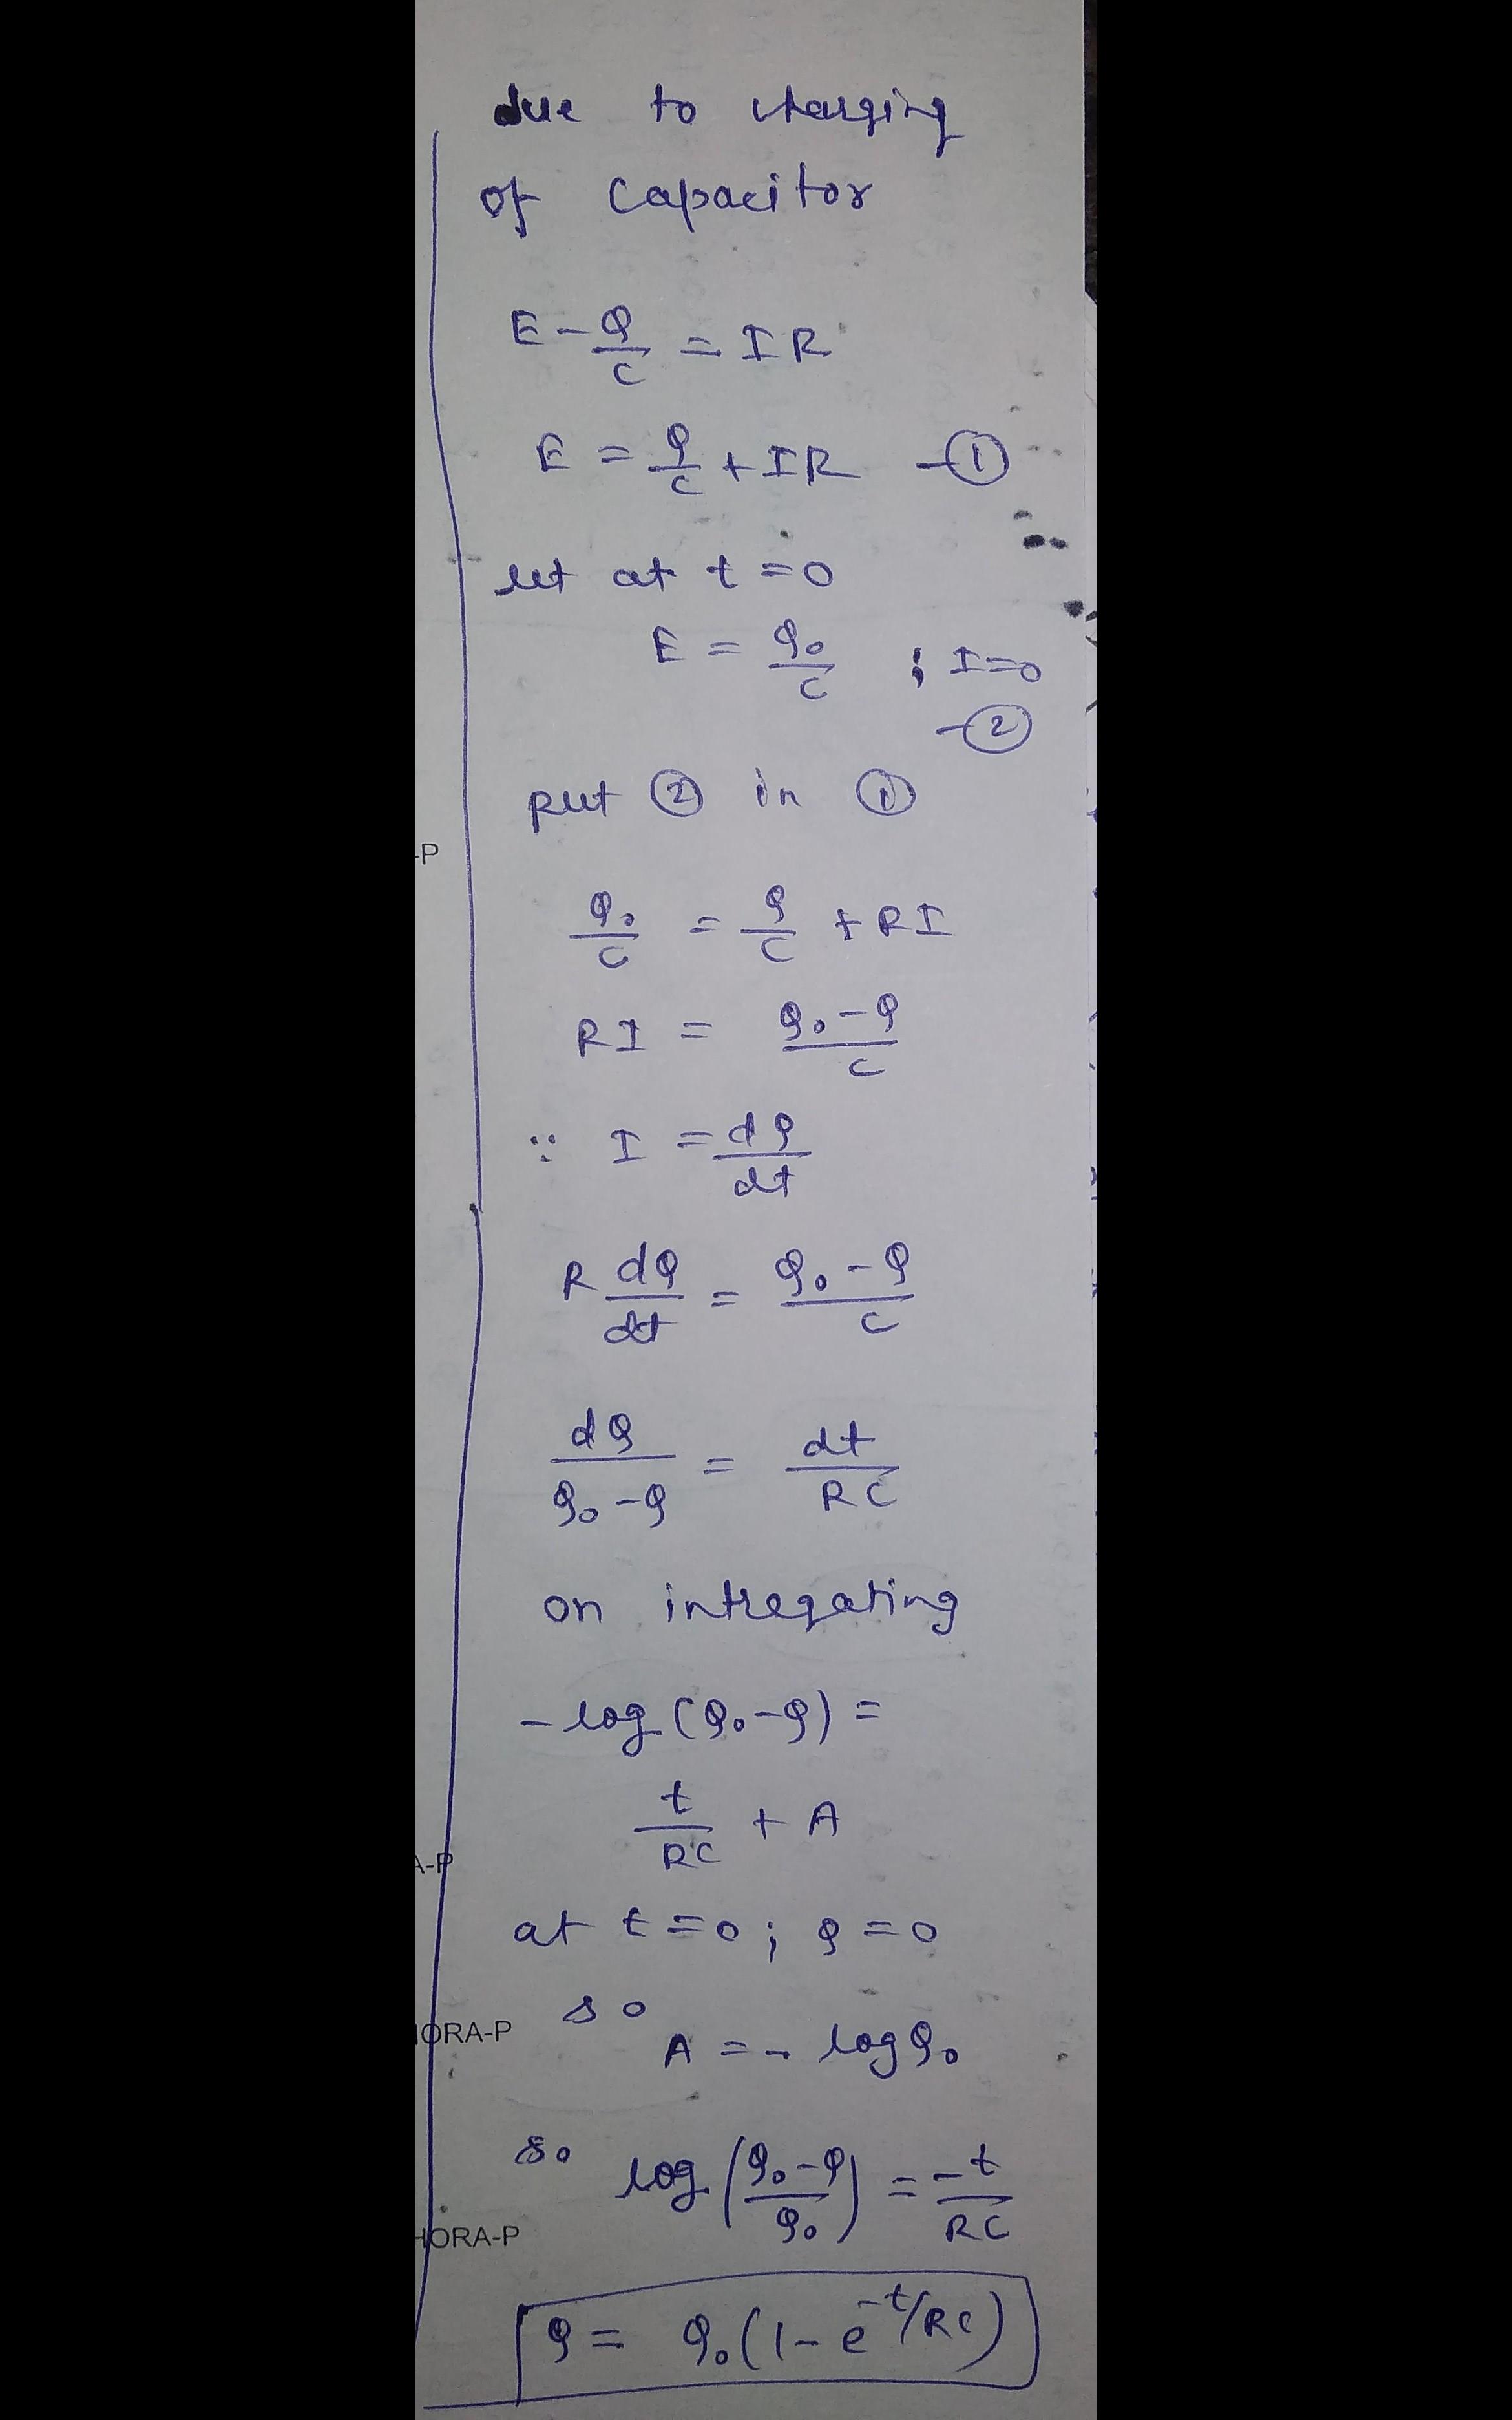 due to charging
of capacitor
E - Q/C = IR
E = Q/C + IR - ①
let at t = 0
E = Q₀/C ; I=0
- ②
put ② in ①
-P
Q₀/C = Q/C + RI
RI = Q₀-Q/C
∵ I = dQ/dt
R dQ/dt = Q₀-Q/C
dQ/Q₀-Q = dt/RC
on intregating
- log (Q₀-Q) =
t/RC + A
A-P
at t=0; Q=0
so
ORA-P
A = - log Q₀
so log (Q₀-Q/Q₀) = -t/RC
HORA-P
Q = Q₀(1-e^-t/RC)